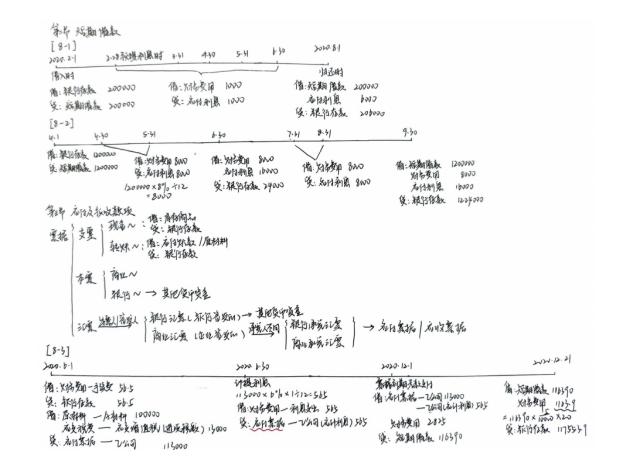 第2节 短期借款
[8-1]
2020.2.1 2.28 3.31 4.30 5.31 6.30 2020.8.1
借入时 归还时
借:银行存款 200000 借:财务费用 1000 借:短期借款 200000
贷:短期借款 200000 贷:应付利息 1000 应付利息 6000
贷:银行存款 206000
[8-2]
4.1 4.30 5.31 6.30 7.31 8.31 9.30
借:银行存款 1200000 借:财务费用 8000 借:财务费用 8000 借:财务费用 8000 借:短期借款 1200000
贷:短期借款 1200000 贷:应付利息 8000 应付利息 16000 贷:应付利息 8000 财务费用 8000
1200000×8%÷12 贷:银行存款 24000 应付利息 16000
=8000 贷:银行存款 1224000
应付及预收款项
票据 支票 现金~:借:库存商品
贷:银行存款
转账~:借:应付账款/原材料
贷:银行存款
本票 商业~
银行~ → 其他货币资金
汇票 银行汇票 → 其他货币资金
商业汇票 承兑人不同 银行承兑汇票 → 应付票据/应收票据
商业承兑汇票
[8-3]
2020.6.1 2020.6.30 2020.12.1 2020.12.21
借:财务费用-手续费 56.5 计提利息 借:短期借款 116390
贷:银行存款 56.5 113000×6%×1÷12=565 借:应付票据-乙公司 113000
借:原材料-A材料 100000 借:财务费用-利息支出 565 -乙公司(应计利息) 565
应交税费-应交增值税(进项税额) 13000 贷:应付票据-乙公司(应计利息) 565 财务费用 2825
贷:应付票据-乙公司 113000 贷:短期借款 116390 贷:银行存款